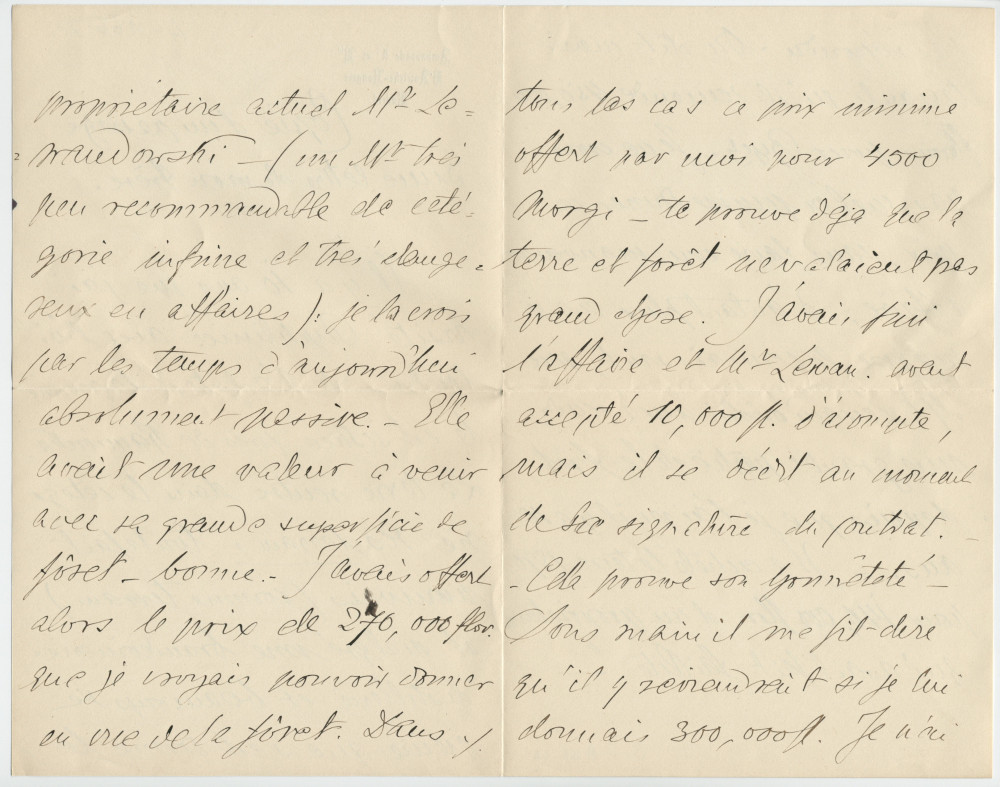 propriétaire actuel Mr Le-
wandowski – (un Mr très
peu recommandable de caté-
gorie infime et très dange-
reux en affaires): je la crois
par les temps d'aujourd'hui
absolument passive. – Elle
avait une valeur à venir
avec sa grande superficie de
fôret – bonne. – J'avais offert
alors le prix de 270,000 flor.
que je croyais pouvoir donner
en vue de la fôret. Dans ./.
tous las cas ce prix minime
offert par moi pour 4500
Morgi – te prouve déja que la
terre et forêt ne valaient pas
grand chose. J'avais fini
l'affaire et Mr Lewan. avait
accepté 10,000 fl. d'àcompte,
mais il se dédit au moment
de la signature du contrat. –
– Cela prouve son honnêteté –
Sous main il me fit-dire
qu'il y reviendrait si je lui
donnais 300,000fl. Je n'ai